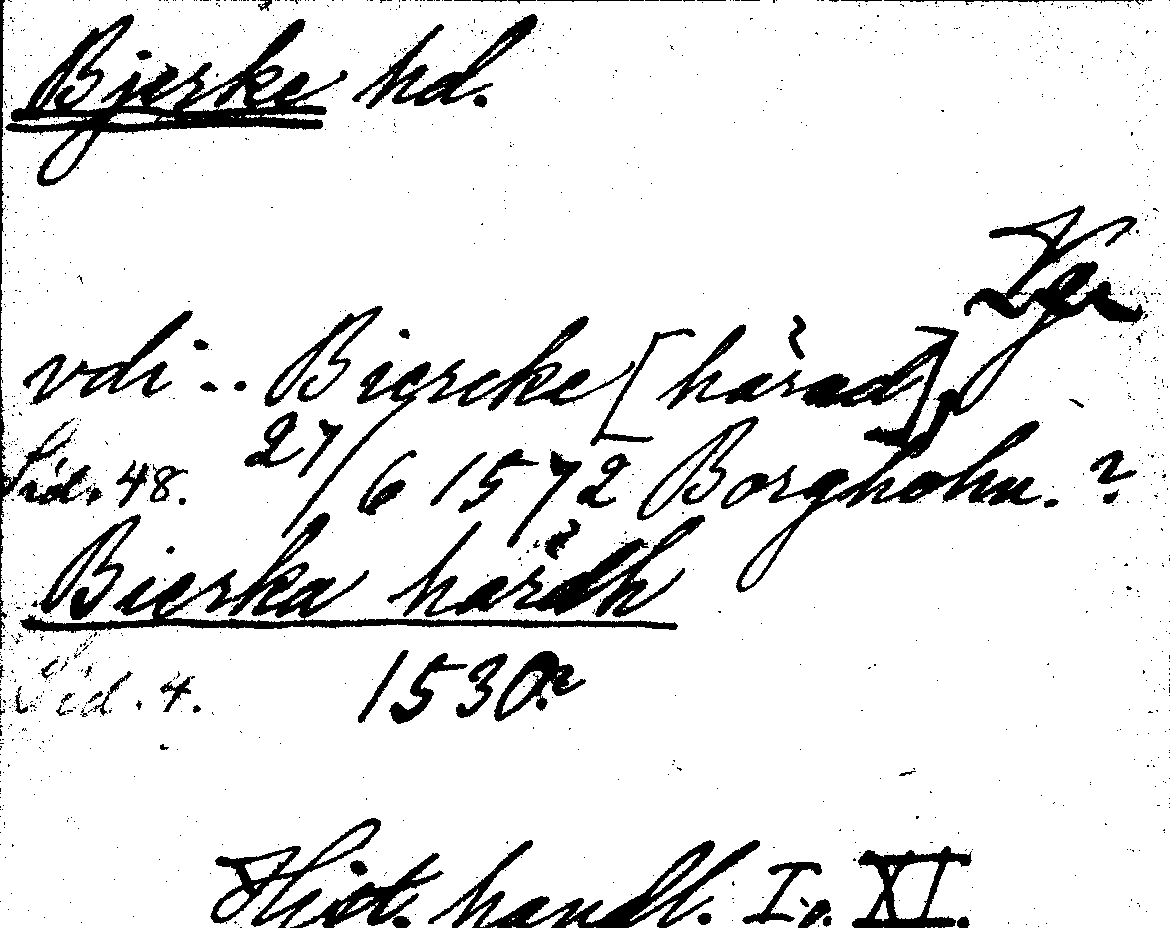 Bjerke hd.
Vgr
vdi... Biercke [härad],
Sid. 48. 27/6 1572 Borghohn. ?
Bierka härdh
Sid. 4. 1530?
Hist. handl. I o. XI.